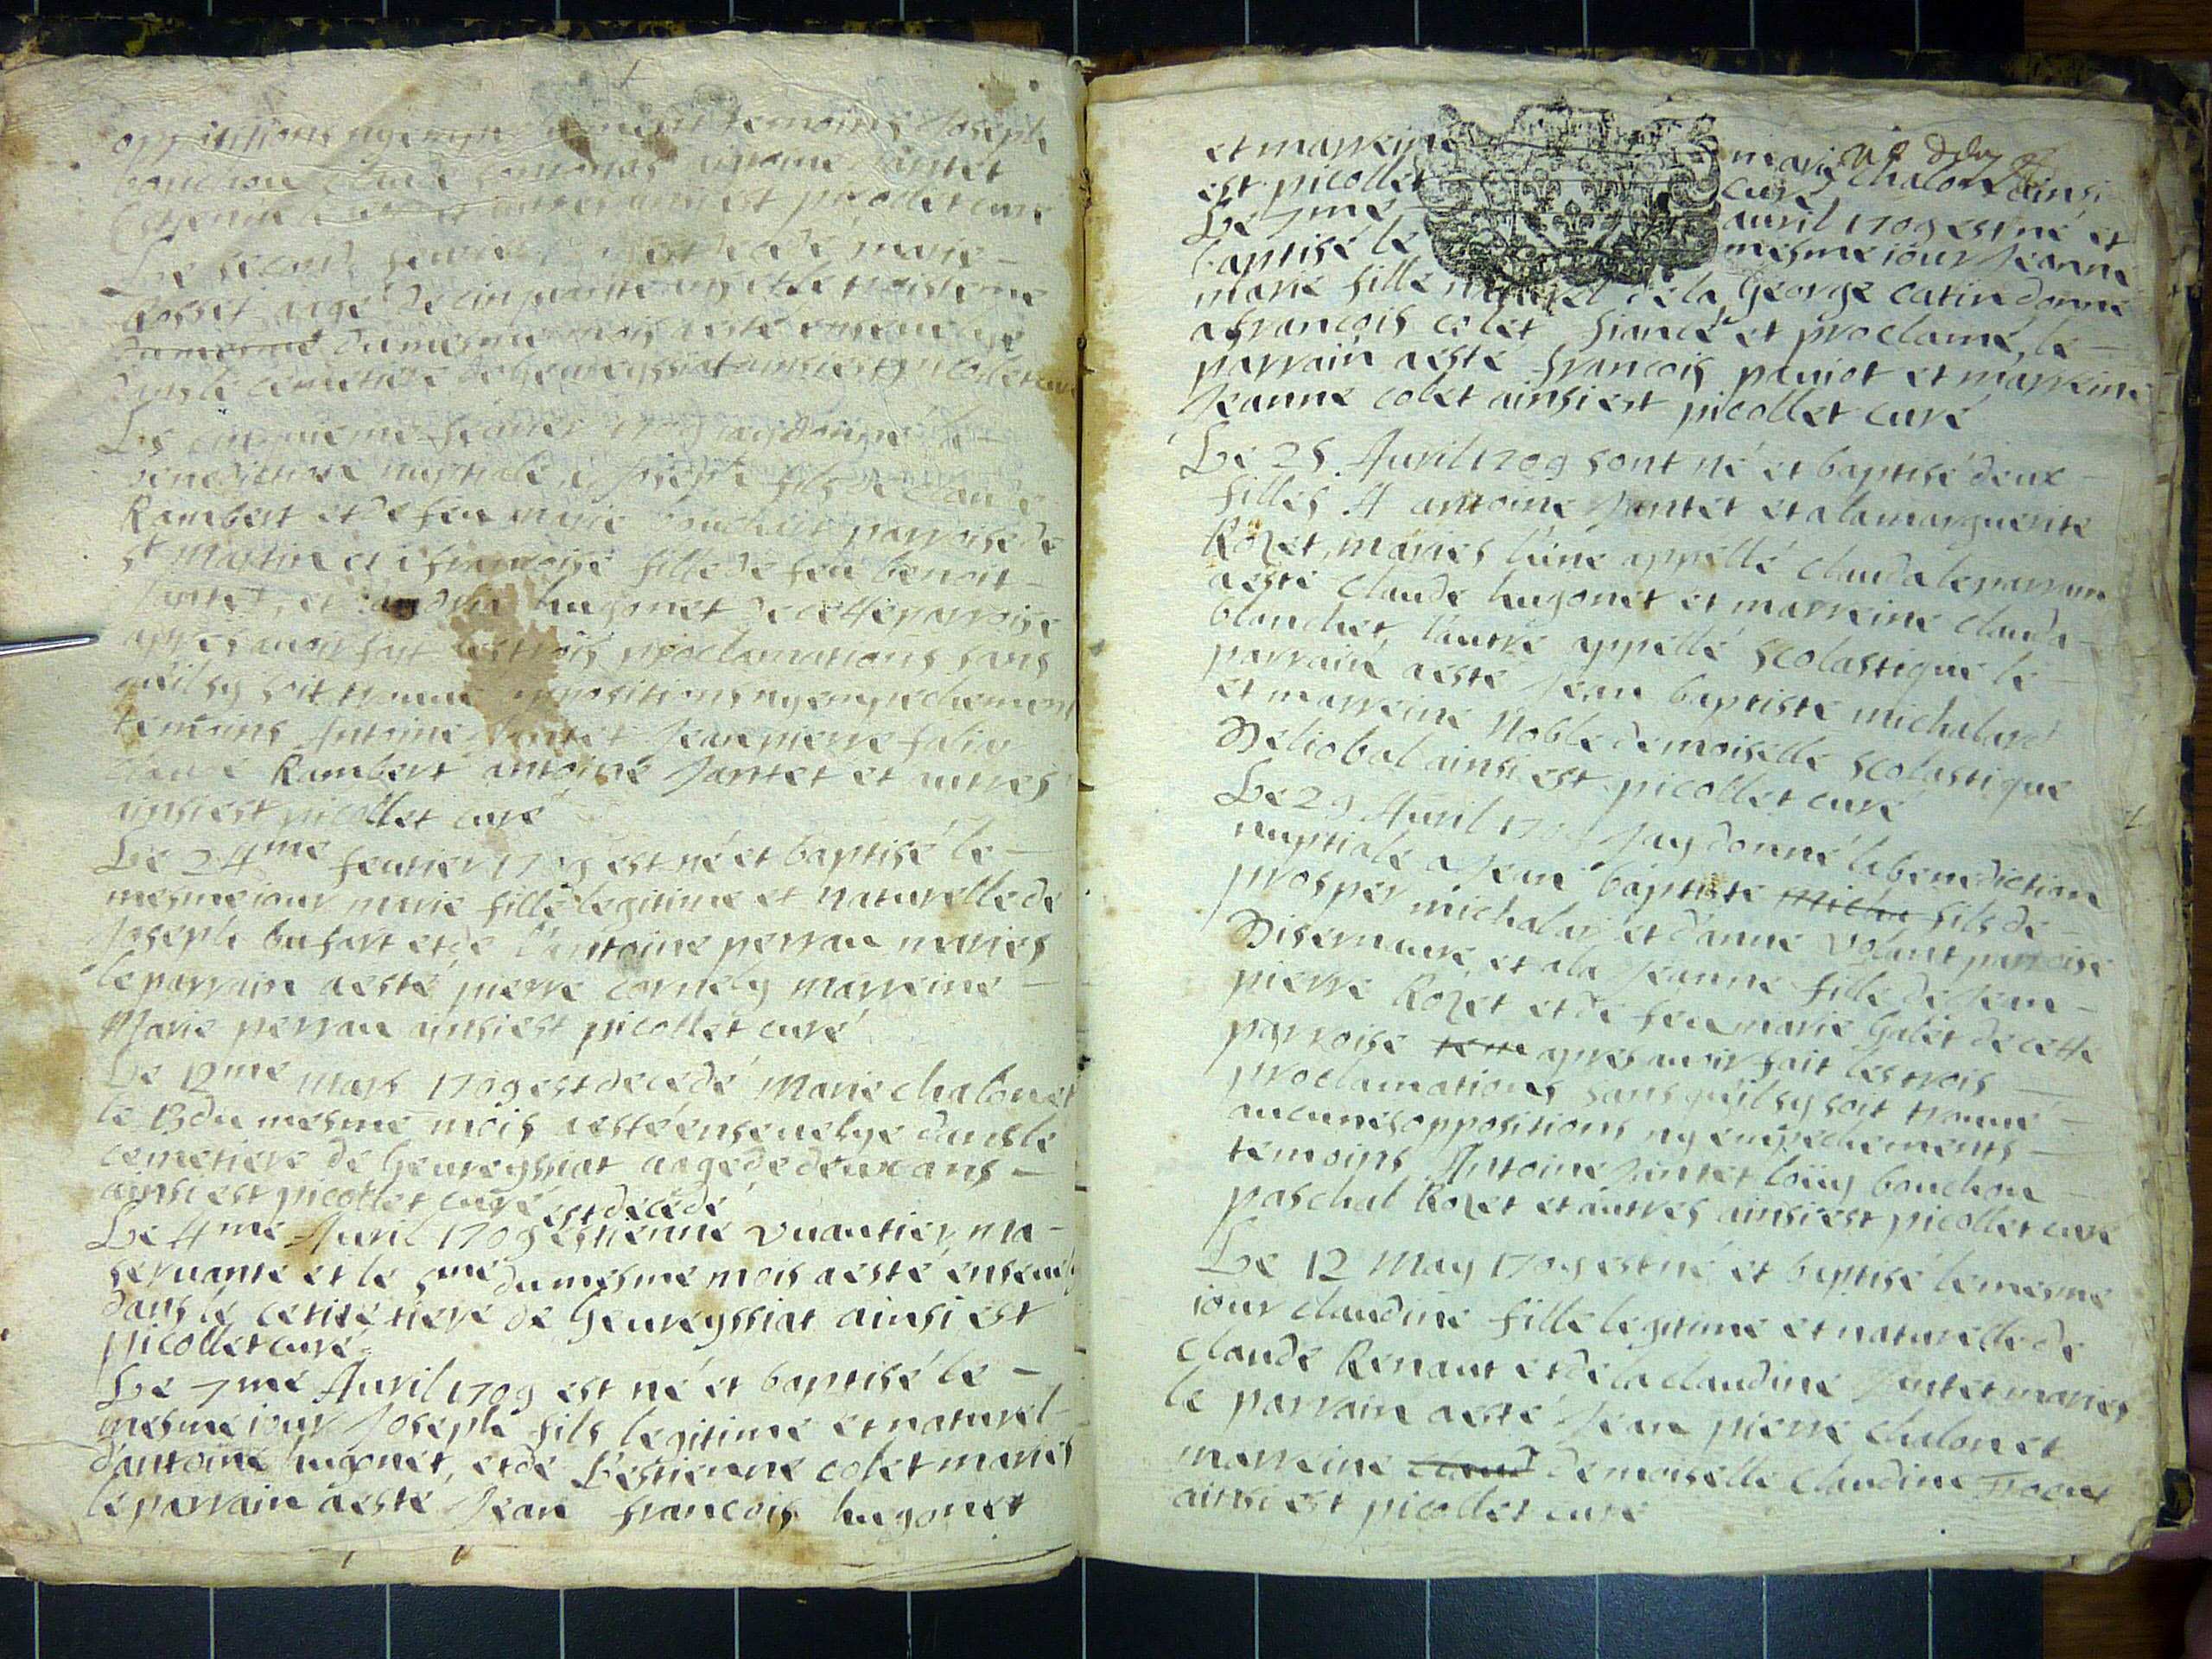 oppositions ny temoins Joseph
bouchon Claude antoine Jantet
et autres ainsi est picollet curé
Le second feurier est decedé marie
Rosset agé de cinquante ans et le troisieme
du mesme du mesme mois a esté enseuelye
dans le cemetiere de Geureyssiat ainsi est picollet curé
Le cinquieme feurier 1709 iay donné la
benediction nuptiale a Joseph fils de claude
Rambert et de feu marie parroise de
st Martin et a francoise fille de feu benoit
Jantet, et hugonet de cette parroise
apres auoir fait les trois proclamations sans
quil sy soit trouué oppositions ny empechement
temoins Antoine Jantet Jean pierre
claude Rambert antoine Jantet et autres
ainsi est picollet curé
Le 24me feurier 1709 est né et baptisé le
mesme iour marie fille legitime et naturelle de
Joseph bufart et de l'antoine perrau mariés
le parrain a esté pierre cornely marreine
Marie perrau ainsi est picollet curé
Le 12me mars 1709 est decedé Marie chalonet
le 13 du mesme mois a esté enseuelye dans le
cemetiere de Geureyssiat aagé de deux ans
ainsi est picollet curé
est decedé
Le 4me Auril 1709 estienne vuautier ma
seruante et le 5me du mesme mois a esté enseuely
dans le cemetiere de Geureyssiat ainsi est
picollet curé
Le 7me Auril 1709 est né et baptisé le
mesme iour Joseph fils legitime et naturel
d'antoine hugonet, et de l'estienne colet mariés
le parrain a esté Jean francois hugonet
et marreine marie chalon ainsi
est picollet curé
Le 7me auril 1709 est né et
baptisé le mesme iour Jeanne
marie fille naturel de la George catin donné
a francois colet fiancé et proclamé, le
parrain a esté francois paniot et marreine
Jeanne colet ainsi est picollet curé
Le 25 Auril 1709 sont né et baptisé deux
filles A antoine Jantet et a la marguerite
Rozet, mariés l'une appellé clauda le parrain
a esté claude hugonet et marreine clauda
blanchet, l'autre appellé scolastique le
parrain a esté Jean baptiste michalard
et marreine Noble demoiselle scolastique
Deliobal ainsi est picollet curé
Le 29 Auril 1709 Jay donné la benediction
nuptiale a Jean baptiste micha fils de
prosper michalar et d'anne volant parroise
Disernaure, et a la Jeanne fille de Jean
pierre Rozet et de feu marie Galet de cette
parroise tem apres auoir fait les trois
proclamations sans quil sy soit trouué
aucunes oppositions ny empechements
temoins Antoine Jantet loüy bouchon
paschal Rozet et autres ainsi est picollet curé
Le 12 May 1709 est né et baptisé le mesme
iour claudine fille legitime et naturelle de
claude Renaut et de la claudine Jantet mariés
le parrain a esté Jean pierre chalon et
marreine claud demoiselle claudine
ainsi est picollet curé